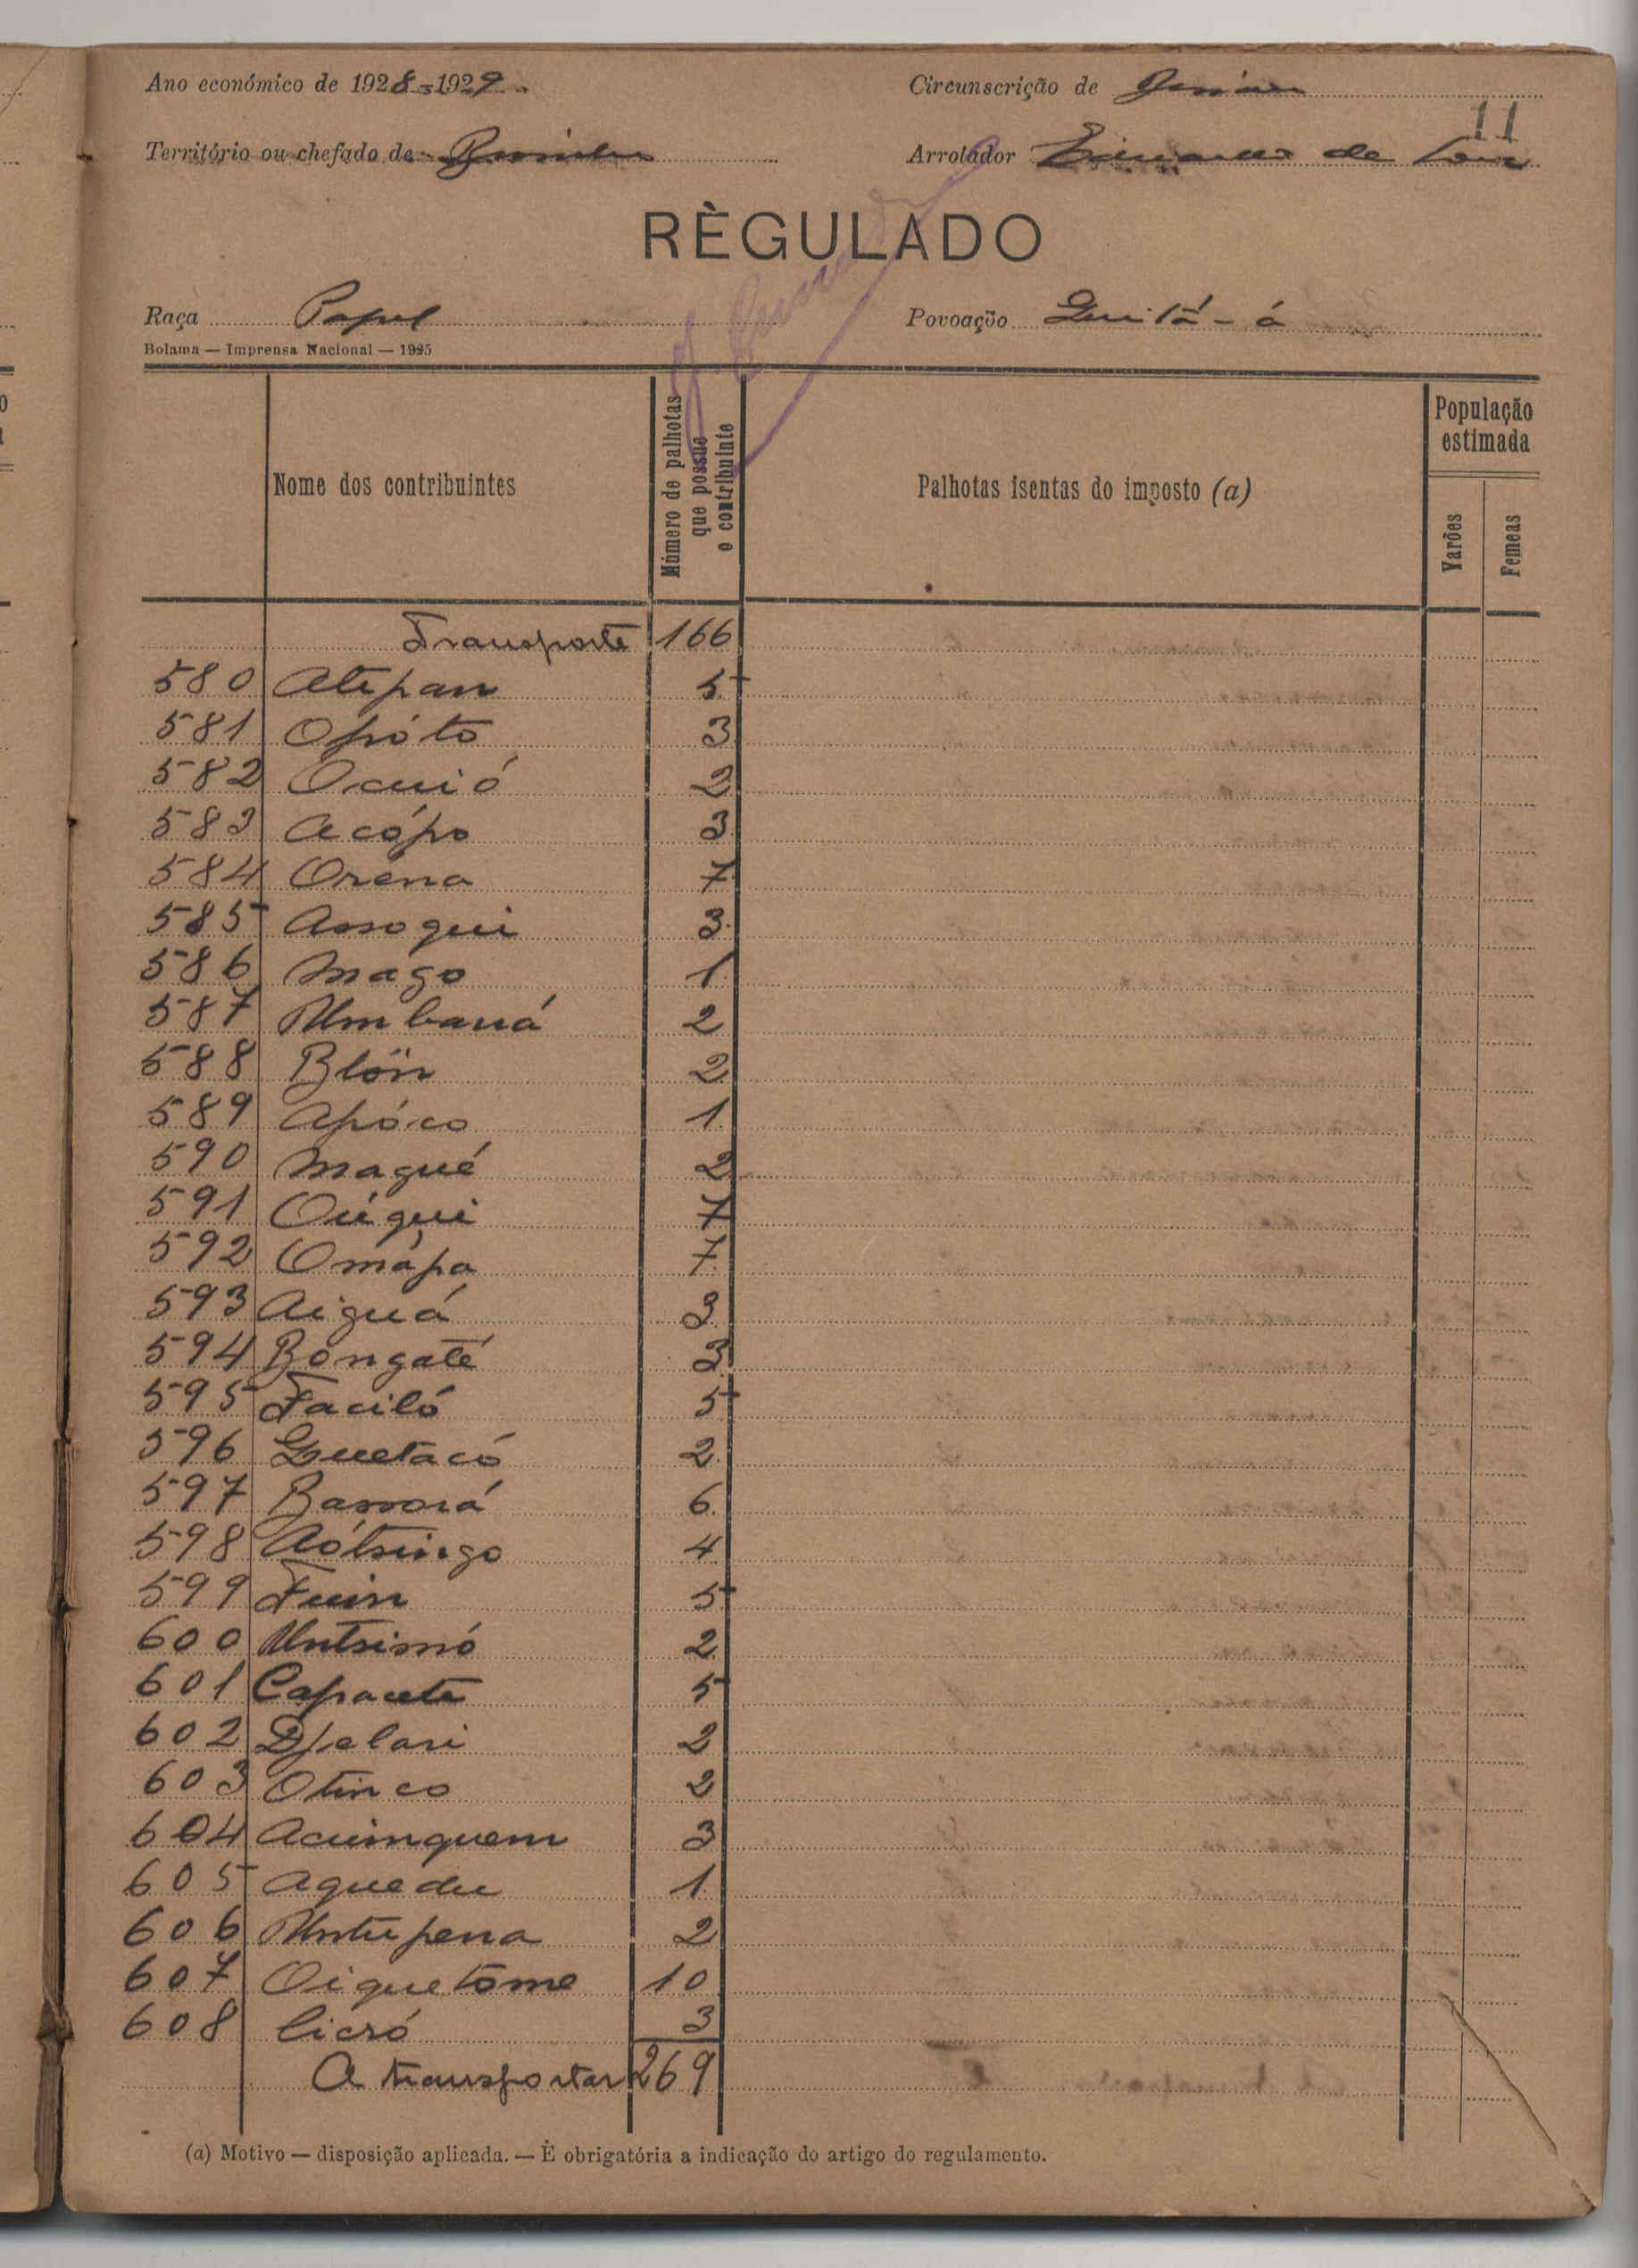 11
Ano económico de 1928-1929
Circunscrição de
Território ou chefado de
Arrolador de
RÈGULADO
Raça Papel
Povoação Quitá-á
Bolama — Imprensa Nacional — 1925
Nome dos contribuintes
Número de palhotas que possue o contribuinte
Palhotas isentas do imposto (a)
População estimada
Varões
Femeas
Transporte 166
580 Atepan 5
581 Opóto 3
582 Ocuió 2
583 Acópo 3
584 Orena 7
585 Assoqui 3
586 Mago 1
587 Umbaná 2
588 Blön 2
589 Apóco 1
590 Magué 2
591 Oúqui 7
592 Omápa 7
593 Aiguá 3
594 Bongaté 3
595 Faciló 5
596 Quetacó 2
597 Bassorá 6
598 Aótsingo 4
599 Fuin 5
600 Untsimó 2
601 Capacete 5
602 Djelari 2
603 Otinco 2
604 Acuinquem 3
605 Aquedu 1
606 Untupena 2
607 Oiquetome 10
608 Cicró 3
A transportar 269
(a) Motivo — disposição aplicada. — É obrigatória a indicação do artigo do regulamento.